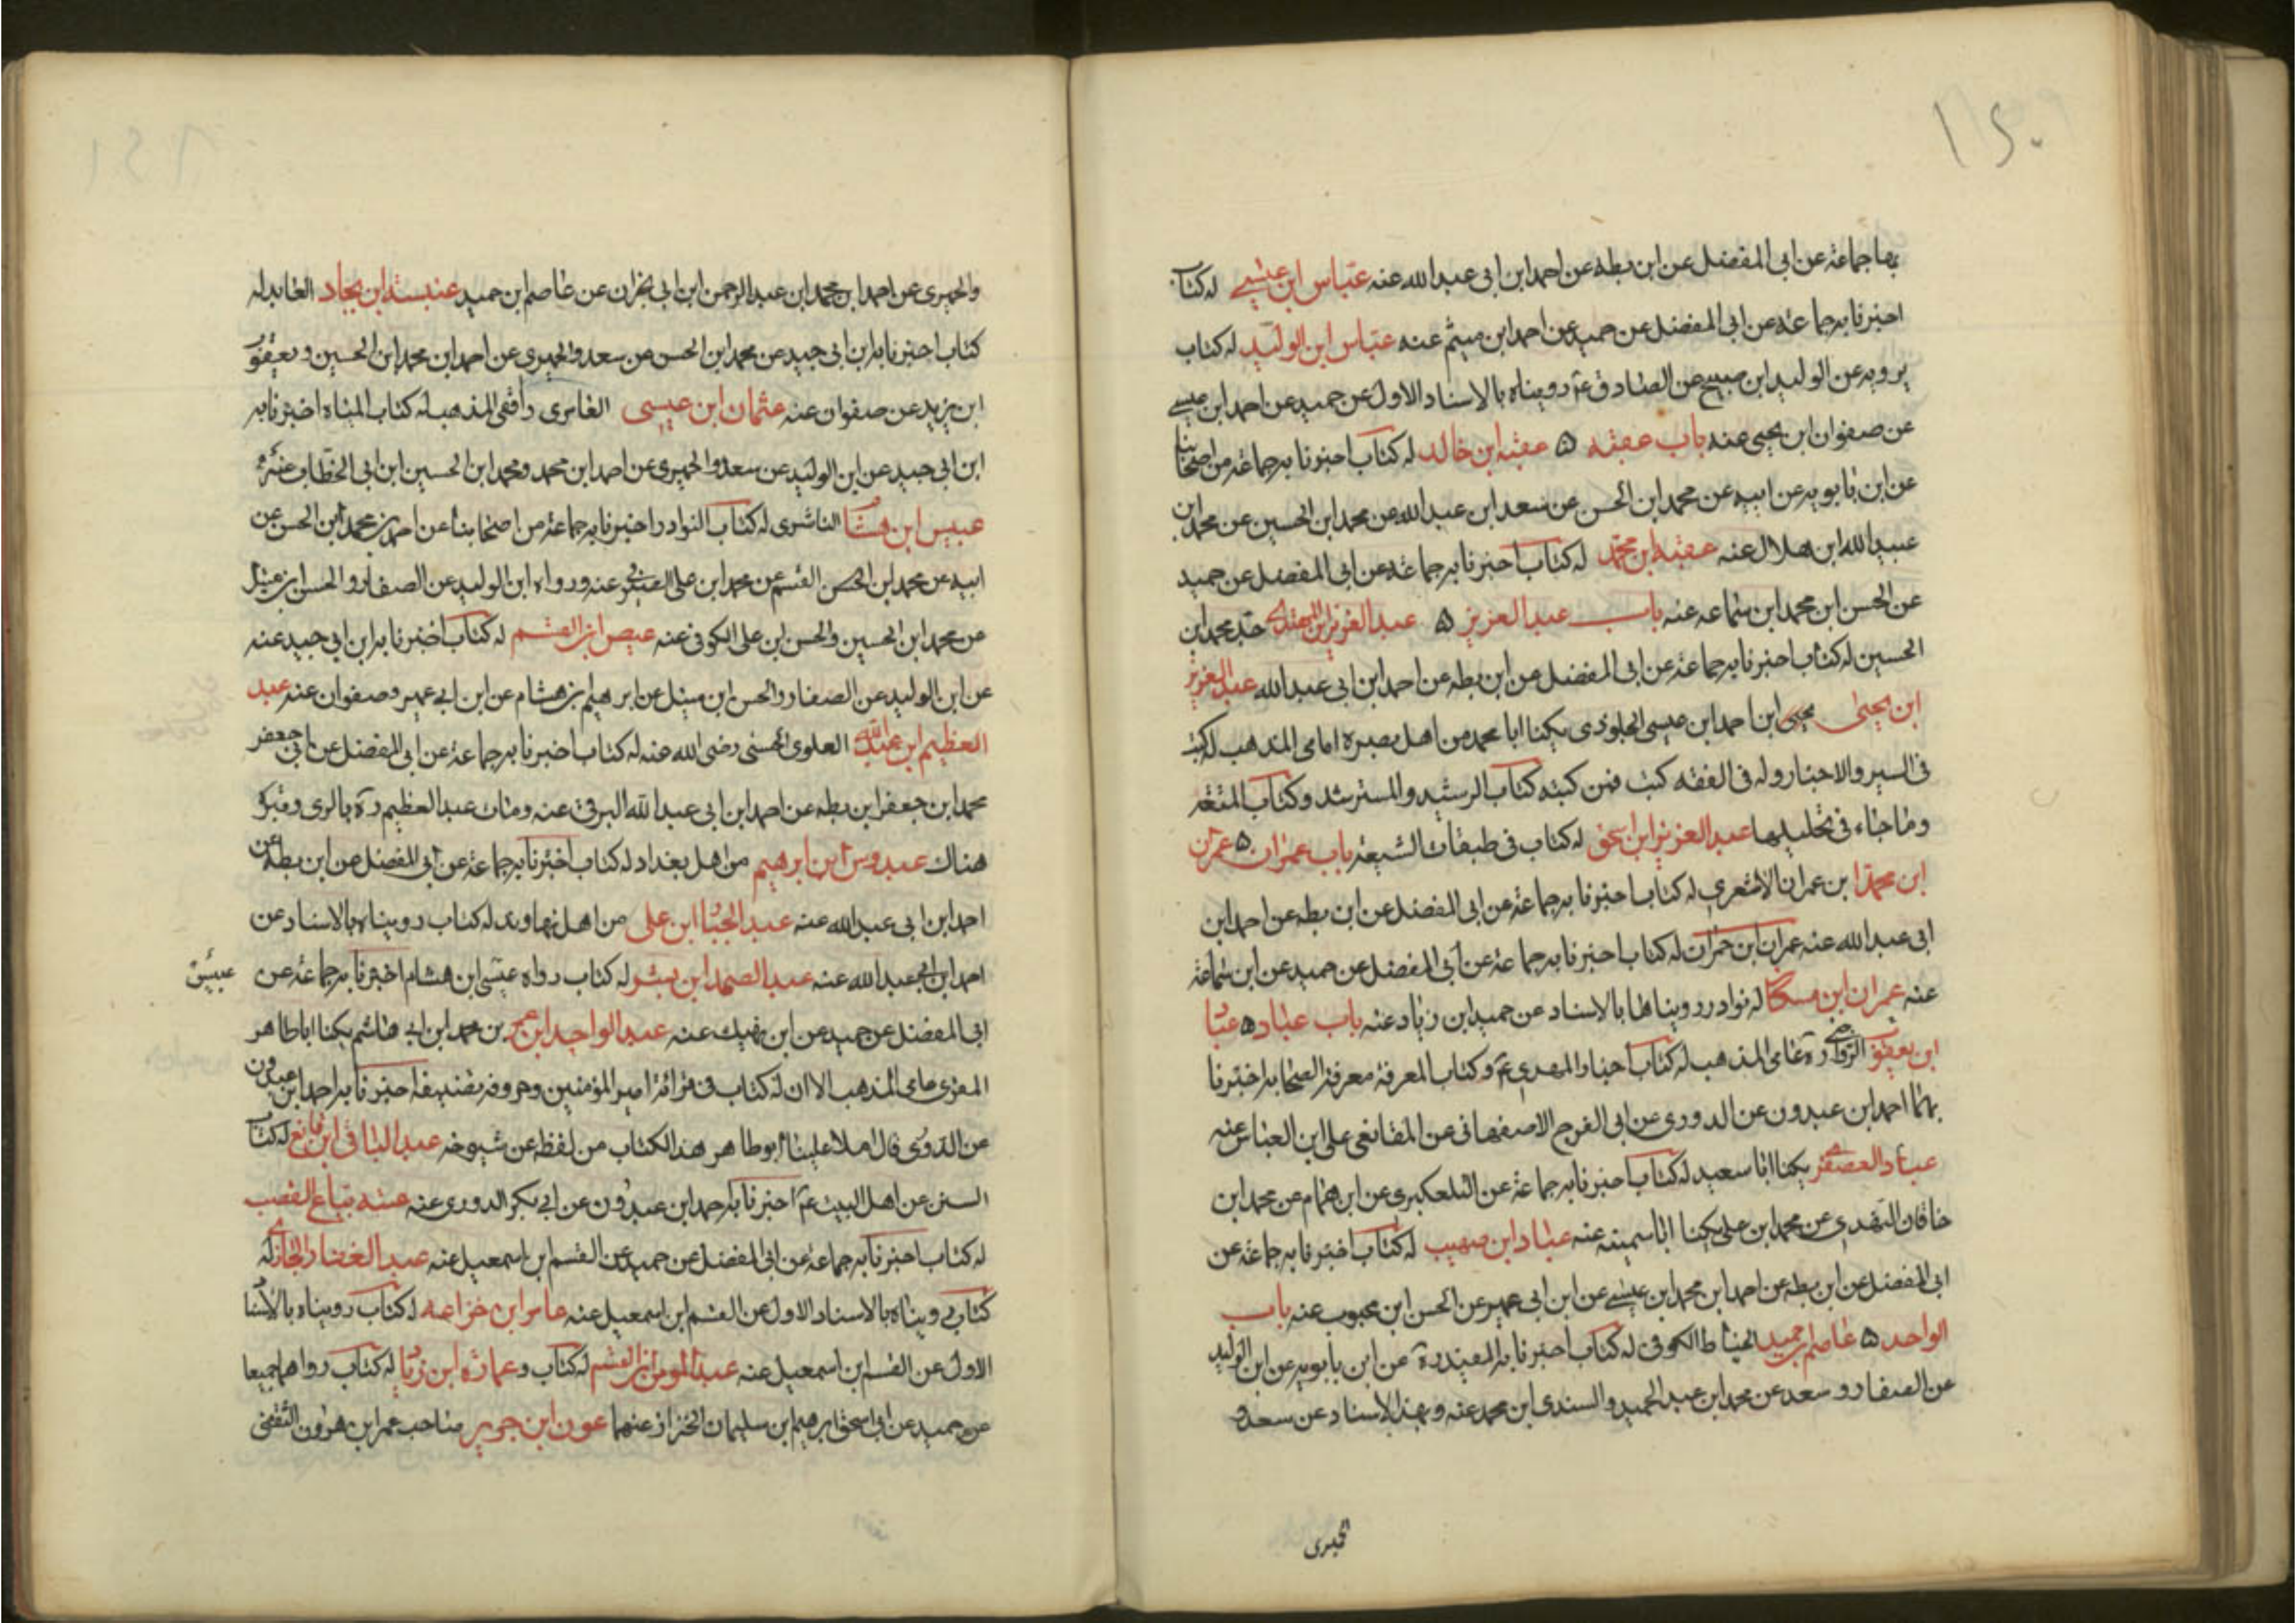 بها جماعة عن ابى المفضل عن ابن بطه عن احمد ابن ابى عبد الله عنه عباس ابن عيسى له كتاب
اخبرنا به جماعة عن ابى المفضل عن حميد عن احمد ابن ميثم عنه عباس ابن الوليد له كتاب
يرويه عن الوليد ابن صبيح عن الصادق ع رويناه بالاسناد الاول عن حميد عن احمد ابن عيسى
عن صفوان ابن يحيى عنه باب عقبه ۵ عقبه ابن خالد له كتاب اخبرنا به جماعة من اصحابنا
عن ابن بابويه عن ابيه عن محمد ابن الحسن عن سعد ابن عبد الله عن محمد ابن الحسين عن محمد ابن
عبيد الله ابن هلال عنه عقبه ابن محمد له كتاب اخبرنا به جماعة عن ابى المفضل عن حميد
عن الحسن ابن محمد ابن سماعه عنه باب عبد العزيز ۵ عبد العزيز ابن المهتدى جد محمد ابن
الحسين له كتاب اخبرنا به جماعة عن ابى المفضل عن ابن بطه عن احمد ابن ابى عبد الله عبد العزيز
ابن يحيى يحيى ابن احمد ابن عيسى الجلودى يكنا ابا محمد من اهل بصره امامى المذهب له كتب
فى السير والاخبار وله فى الفقه كتب فمن كتبه كتاب الرشيد والمسترشد وكتاب المتعه
وما جاء فى تحليلها عبد العزيز ابن اسحق له كتاب فى طبقات الشيعة باب عمران ۵ عمران
ابن محمد ابن عمران الاشعرى له كتاب اخبرنا به جماعة عن ابى المفضل عن ابن بطه عن احمد ابن
ابى عبد الله عنه عمران ابن حمران له كتاب اخبرنا به جماعة عن ابى المفضل عن حميد عن ابن سماعة
عنه عمران ابن مسكان له نوادر رويناها بالاسناد عن حميد ابن زياد عنه باب عباد ۵ عباد
ابن يعقوب الرواجنى ره عامى المذهب له كتاب اخبار المهدى ع وكتاب المعرفة معرفة الصحابه اخبرنا
بهما احمد ابن عبدون عن الدورى عن ابى الفرج الاصفهانى عن المقانعى على ابن العباس عنه
عباد العصفرى يكنا ابا سعيد له كتاب اخبرنا به جماعة عن التلعكبرى عن ابن همام عن محمد ابن
خاقان النهدى عن محمد ابن على يكنا ابا سمينه عنه عباد ابن صهيب له كتاب اخبرنا به جماعة عن
ابى المفضل عن ابن بطه عن احمد ابن محمد ابن عيسى عن ابن ابى عمير عن الحسن ابن محبوب عنه باب
الواحد ۵ عاصم بن حميد الحناط الكوفى له كتاب اخبرنا به المفيد ره عن ابن بابويه عن ابن الوليد
عن الصفار وسعد عن محمد ابن عبد الحميد والسندى ابن محمد عنه وبهذا الاسناد عن سعد و
الحميرى
والحميرى عن احمد ابن محمد ابن عبد الرحمن ابن ابى نجران عن عاصم ابن حميد عنبسة ابن بجاد العابد له
كتاب اخبرنا به ابن ابى جيد عن محمد ابن الحسن عن سعد والحميرى عن احمد ابن محمد ابن الحسين ويعقوب
ابن يزيد عن صفوان عنه عثمان ابن عيسى العامرى واقفى المذهب له كتاب المياه اخبرنا به
ابن ابى جيد عن ابن الوليد عن سعد والحميرى عن احمد ابن محمد ومحمد ابن الحسين ابن ابى الخطاب عنه
عبيس ابن هشام الناشرى له كتاب النوادر اخبرنا به جماعة من اصحابنا عن احمد بن محمد ابن الحسن عن
ابيه عن محمد ابن الحسن القسم عن محمد ابن على الصيرفى عنه ورواه ابن الوليد عن الصفار والحسن ابن متيل
عن محمد ابن الحسين والحسن ابن على الكوفى عنه عيص ابن القسم له كتاب اخبرنا به ابن ابى جيد عنه
عن ابن الوليد عن الصفار والحسن ابن متيل عن ابرهيم بن هشام عن ابن ابى عمير وصفوان عنه عبد
العظيم ابن عبد الله العلوى الحسنى رضى الله عنه له كتاب اخبرنا به جماعة عن ابى المفضل عن ابى جعفر
محمد ابن جعفر ابن بطه عن احمد ابن ابى عبد الله البرقى عنه ومات عبد العظيم ره بالرى وقبره
هناك عبدوس ابن ابرهيم من اهل بغداد له كتاب اخبرنا به جماعة عن ابى المفضل عن ابن بطه عن
احمد ابن ابى عبد الله عنه عبد الجبار ابن على من اهل نهاوند له كتاب رويناه بالاسناد عن
احمد ابن ابى عبد الله عنه عبد الصمد ابن بشر له كتاب رواه عيسى ابن هشام اخبرنا به جماعة عن
عبيس
ابى المفضل عن حميد عن ابن نهيك عنه عبد الواحد ابن عمر بن محمد ابن ابى هاشم يكنا ابا طاهر
المقرى عامى المذهب الا ان له كتاب فى قرائة امير المؤمنين وحروفه بتفنيفه اخبرنا به احمد ابن عبدون
عن الدورى قال املا علينا ابو طاهر هذا الكتاب من لفظه عن شيوخه عبد الباقى ابن قانع له كتاب
السنن عن اهل البيت ع اخبرنا به احمد ابن عبدون عن ابى بكر الدورى عنه عتبه بياع القصب
له كتاب اخبرنا به جماعة عن ابى المفضل عن حميد عن القسم ابن اسمعيل عنه عبد الغفار الجازى له
كتاب رويناه بالاسناد الاول عن القسم ابن اسمعيل عنه عامر ابن خزاعه له كتاب رويناه بالاسناد
الاول عن القسم ابن اسمعيل عنه عبد المومن ابن القسم له كتاب وعماره ابن زياد له كتاب رواهما جميعا
عن حميد عن ابى اسحق ابرهيم ابن سليمان الخزاز عنهما عون ابن جرير صاحب عمر ابن هرون الثقفى